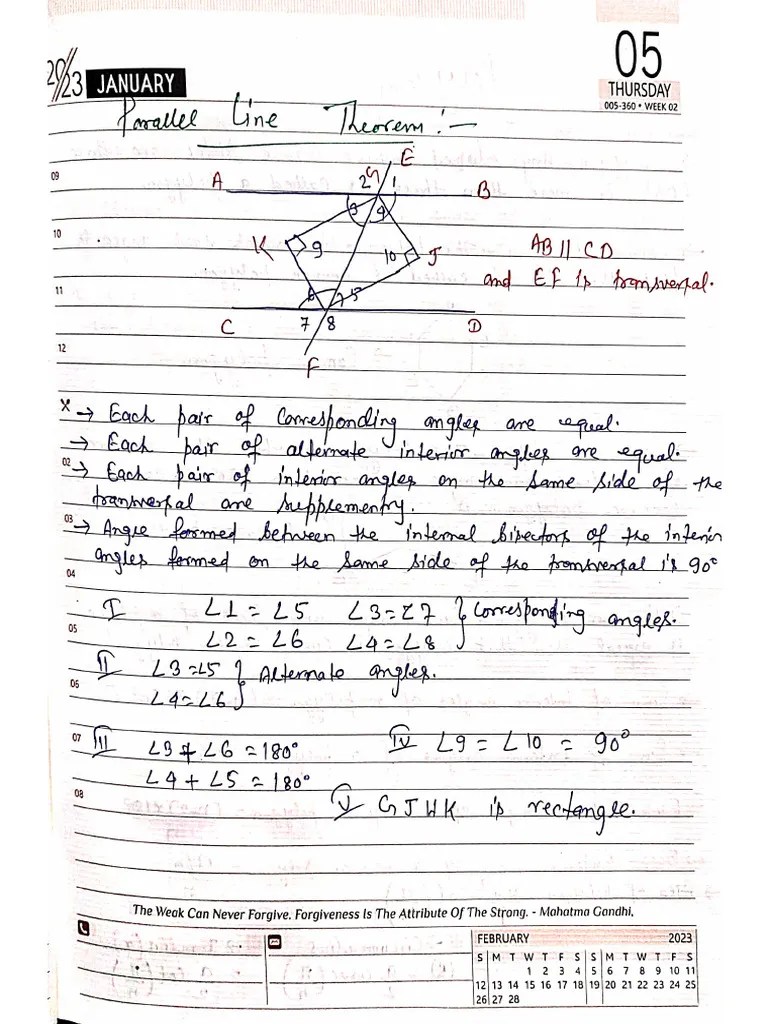 2023 JANUARY
05
THURSDAY
005-360 • WEEK 02
Parallel Line Theorem :-
E
09
A 2 G 1 B
3 4
10
K 9 10 J
AB || CD
and EF is transversal.
11
6 5
C 7 8 D
12
F
→ Each pair of corresponding angles are equal.
→ Each pair of alternate interior angles are equal.
02 → Each pair of interior angles on the same side of the
transversal are supplementry.
03 → Angle formed between the internal bisectors of the interior
angles formed on the same side of the transversal is 90°
04
I ∠1 = ∠5 ∠3 = ∠7 } Corresponding angles.
05
∠2 = ∠6 ∠4 = ∠8
II ∠3 = ∠5 } Alternate angles.
06
∠4 = ∠6
07
III ∠3 + ∠6 = 180° IV ∠9 = ∠10 = 90°
∠4 + ∠5 = 180°
08
V GJHK is rectangle.
The Weak Can Never Forgive. Forgiveness Is The Attribute Of The Strong. - Mahatma Gandhi.
FEBRUARY 2023
S M T W T F S S M T W T F S
1 2 3 4 5 6 7 8 9 10 11
12 13 14 15 16 17 18 19 20 21 22 23 24 25
26 27 28